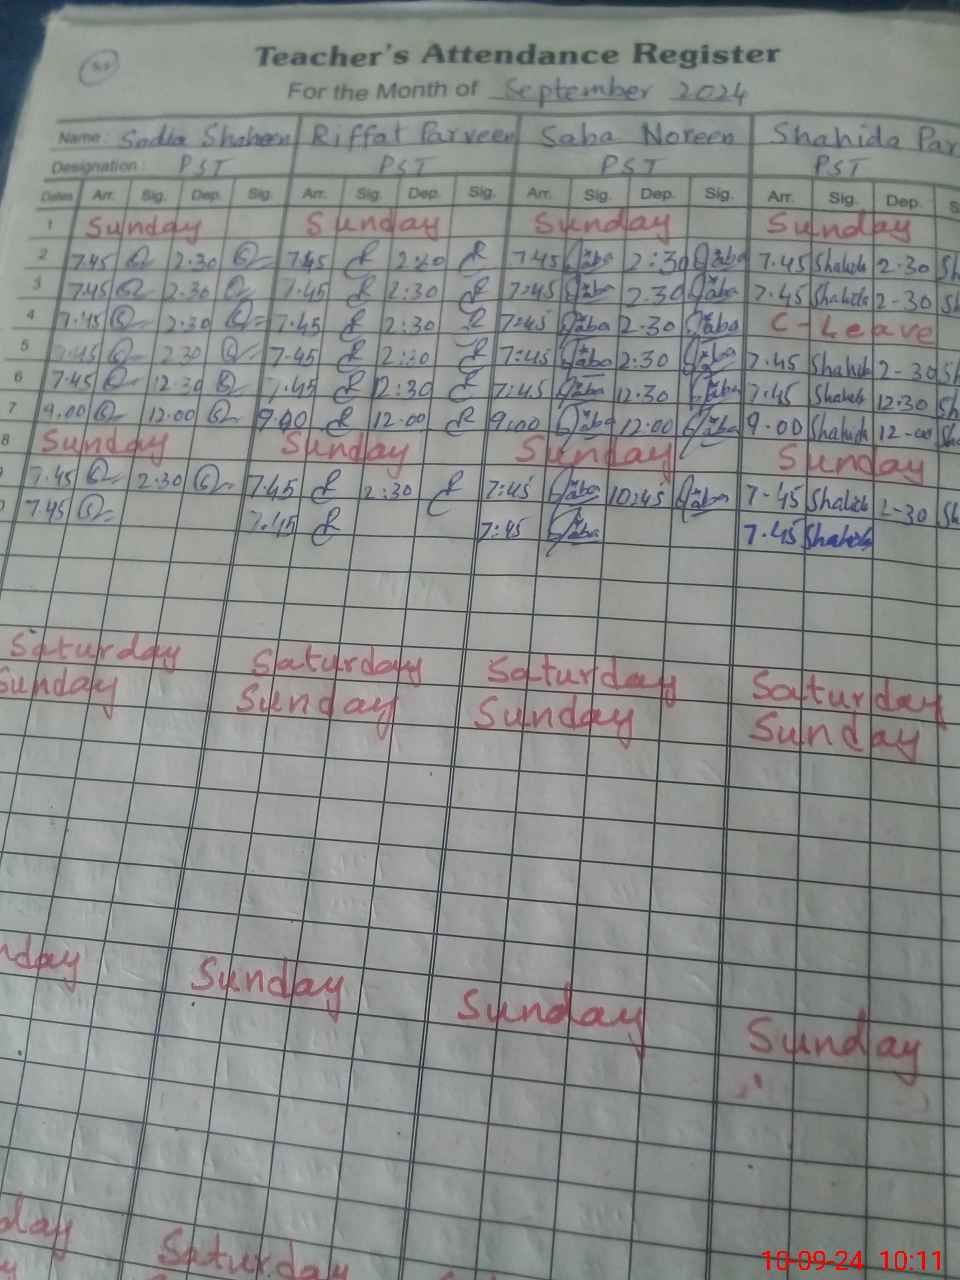 Teacher's Attendance Register
For the Month of September 2024
Name: Sadia Shaheen Riffat Parveen Saba Noreen Shahida Par
Designation: PST PST PST PST
Dates Arr. Sig. Dep. Sig. Arr. Sig. Dep. Sig. Arr. Sig. Dep. Sig. Arr. Sig. Dep. S
1 Sunday Sunday Sunday Sunday
2 7.45 2.30 7.45 2:30 7:45 Saba 2:30 Saba 7.45 Shahida 2-30 Sh
3 7.45 2.30 7.45 2:30 7:45 Saba 2.30 Saba 7.45 Shahida 2-30 Sh
4 7.45 2:30 7.45 2:30 7:45 Saba 2.30 Saba C-Leave
5 7.45 2.30 7.45 2:30 7:45 Saba 2:30 Saba 7.45 Shahida 2-30 Sh
6 7.45 12.30 7.45 12:30 7:45 Saba 12.30 Saba 7.45 Shahida 12.30 Sh
7 9.00 12.00 9.00 12.00 9:00 Saba 12:00 Saba 9.00 Shahida 12-00 Sha
8 Sunday Sunday Sunday Sunday
7.45 2:30 7.45 2:30 7:45 Saba 10:45 Saba 7-45 Shahida 2-30 Sh
7.45 7.45 7:45 Saba 7.45 Shahida
Saturday Saturday Saturday Saturday
Sunday Sunday Sunday Sunday
nday Sunday Sunday Sunday
day Saturday
10-09-24 10:11